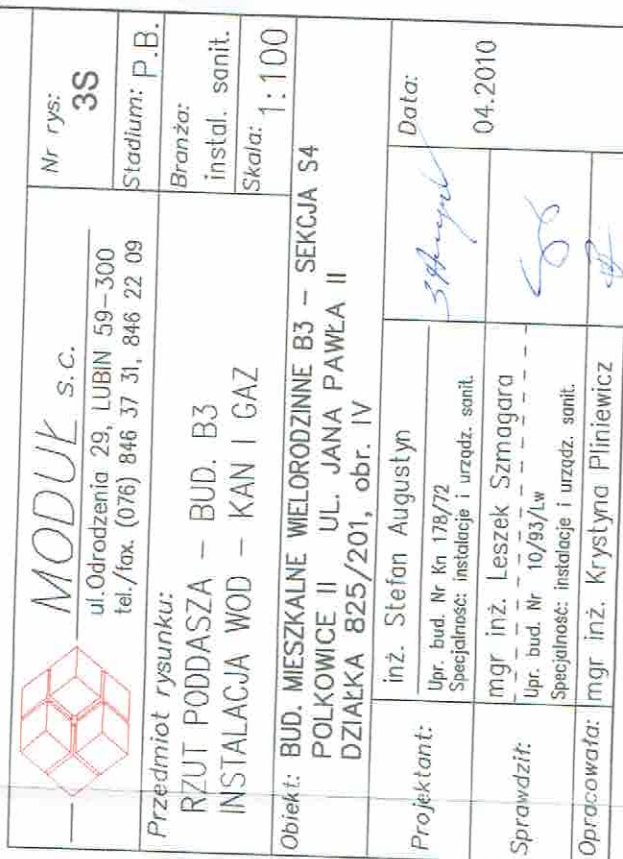 MODUŁ s.c.
ul.Odrodzenia 29, LUBIN 59-300
tel./fax. (076) 846 37 31, 846 22 09
Nr rys:
3S
Stadium: P.B.
Przedmiot rysunku:
RZUT PODDASZA – BUD. B3
INSTALACJA WOD – KAN I GAZ
Branża:
instal. sanit.
Skala: 1:100
Obiekt: BUD. MIESZKALNE WIELORODZINNE B3 – SEKCJA S4
POLKOWICE II UL. JANA PAWŁA II
DZIAŁKA 825/201, obr. IV
Projektant:
inż. Stefan Augustyn
Upr. bud. Nr Kn 178/72
Specjalność: instalacje i urządz. sanit.
Data:
04.2010
Sprawdził:
mgr inż. Leszek Szmagara
Upr. bud. Nr 10/93/Lw
Specjalność: instalacje i urządz. sanit.
Opracowała: mgr inż. Krystyna Pliniewicz